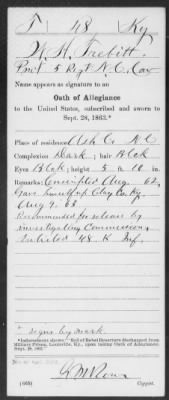 T 48 Ky.
W. H. Trebitt
Priv't 5 Regt N. C. Cav
Name appears as signature to an
Oath of Allegiance
to the United States, subscribed and sworn to
Sept. 28, 1863.*
Place of residence Ash Co. N.C.
Complexion Dark; hair Blck
Eyes Blck; height 5 ft. 10 in.
Remarks: Conscripted Aug 62,
Gave himself up Clay Co. Ky.
Aug 9. 63
Recommended for release by
investigating Commission,
Enlisted 48 K Inf.
* signs by mark.
*Indorsement shows: "Roll of Rebel Deserters discharged from
Military Prison, Louisville, Ky., upon taking Oath of Allegiance,
Sept. 28, 1863."
(668)
Copyist.